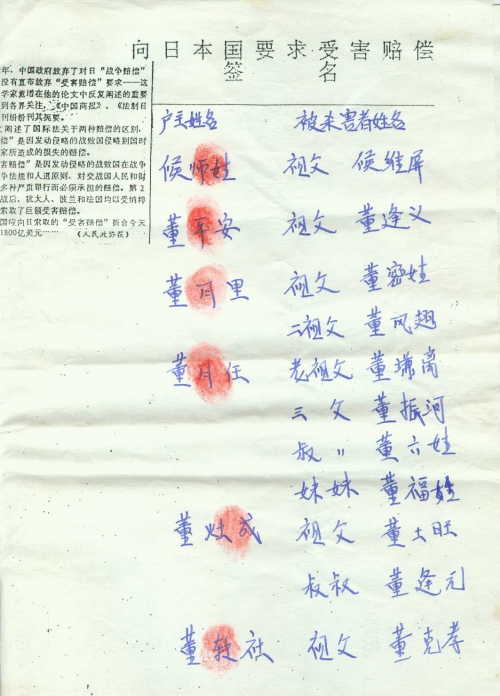 向日本国要求受害赔偿
签名
年，中国政府放弃了对日“战争赔偿”
没有宣布放弃“受害赔偿”要求——这
学家童增在他的论文中反复阐述的重要
到各界关注，《中国商报》、《法制日
刊纷纷刊其概要。
阐述了国际法关于两种赔偿的区别，
偿”是因发动侵略的战败国侵略到国时
家所造成的损失的赔偿。
害赔偿”是因发动侵略的战败国在战争
争法规和人道原则，对交战国人民和财
多种严重罪行而必须承担的赔偿。第2
战后，犹太人、波兰和法国均以受纳粹
索取了巨额受害赔偿。
国应向日索取的“受害赔偿”折合今天
1800亿美元…… （《人民政协报》）
户主姓名 被来害者姓名
侯师娃 祖父 侯维屏
董平安 祖父 董逢义
董月里 祖父 董密娃
二祖父 董风翅
董月任 老祖父 董离
三父 董振河
叔〃 董六娃
妹妹 董福娃
董灶成 祖父 董土旺
叔叔 董逢元
董社 祖父 董克孝